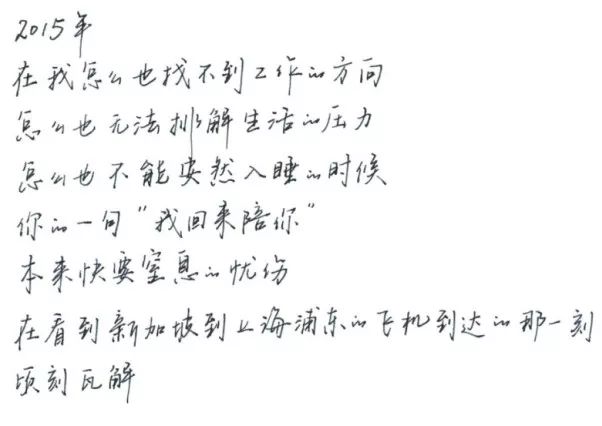 2015年
在我怎么也找不到工作的方向
怎么也无法排解生活的压力
怎么也不能安然入睡的时候
你的一句“我回来陪你”
本来快要窒息的忧伤
在看到新加坡到上海浦东的飞机到达的那一刻
顷刻瓦解